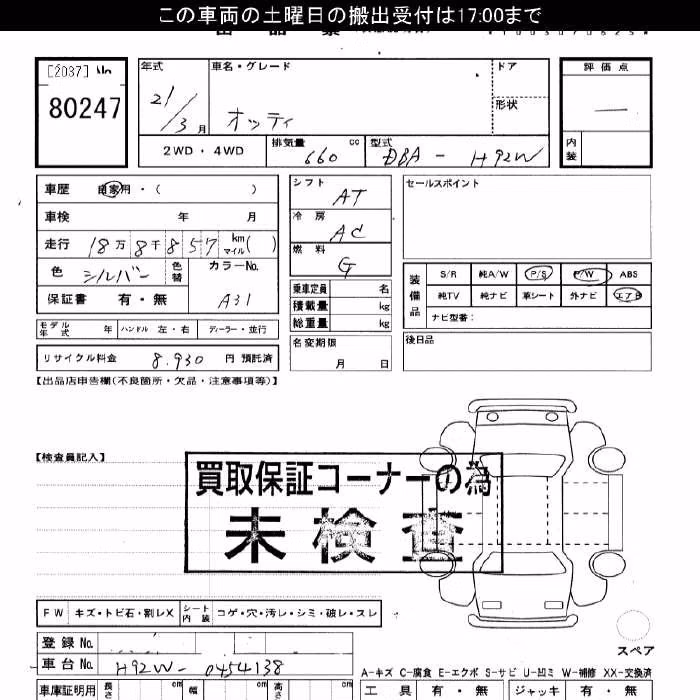 この車両の土曜日の搬出受付は17:00まで
出品票
[2037] No
80247
年式 車名・グレード ドア 評価点
21/3月 オッティ 形状 —
2WD・4WD 排気量 660 cc 型式 DBA - H92W 内装
車歴 自家用・( )
車検 年 月
走行 18万8千857 km マイル( )
色 シルバー 色替 カラーNo.
保証書 有・無 A31
モデル年式 年 ハンドル 左・右 ディーラー・並行
リサイクル料金 8,930 円 預託済
シフト AT
冷房 AC
燃料 G
乗車定員 名
積載量 kg
総重量 kg
名変期限
月 日
セールスポイント
装備品 S/R 純A/W P/S P/W ABS
純TV 純ナビ 革シート 外ナビ エアB
ナビ型番:
後日品
【出品店申告欄(不良箇所・欠品・注意事項等)】
【検査員記入】
買取保証コーナーの為
未検査
FW キズ・トビ石・割レX シート内装 コゲ・穴・汚レ・シミ・破レ・スレ
登録No.
車台No. H92W- 0454138
スペア
A-キズ C-腐食 E-エクボ S-サビ U-凹ミ W-補修 XX-交換済
車庫証明用 長さ cm 幅 cm 高さ cm
工具 有・無 ジャッキ 有・無